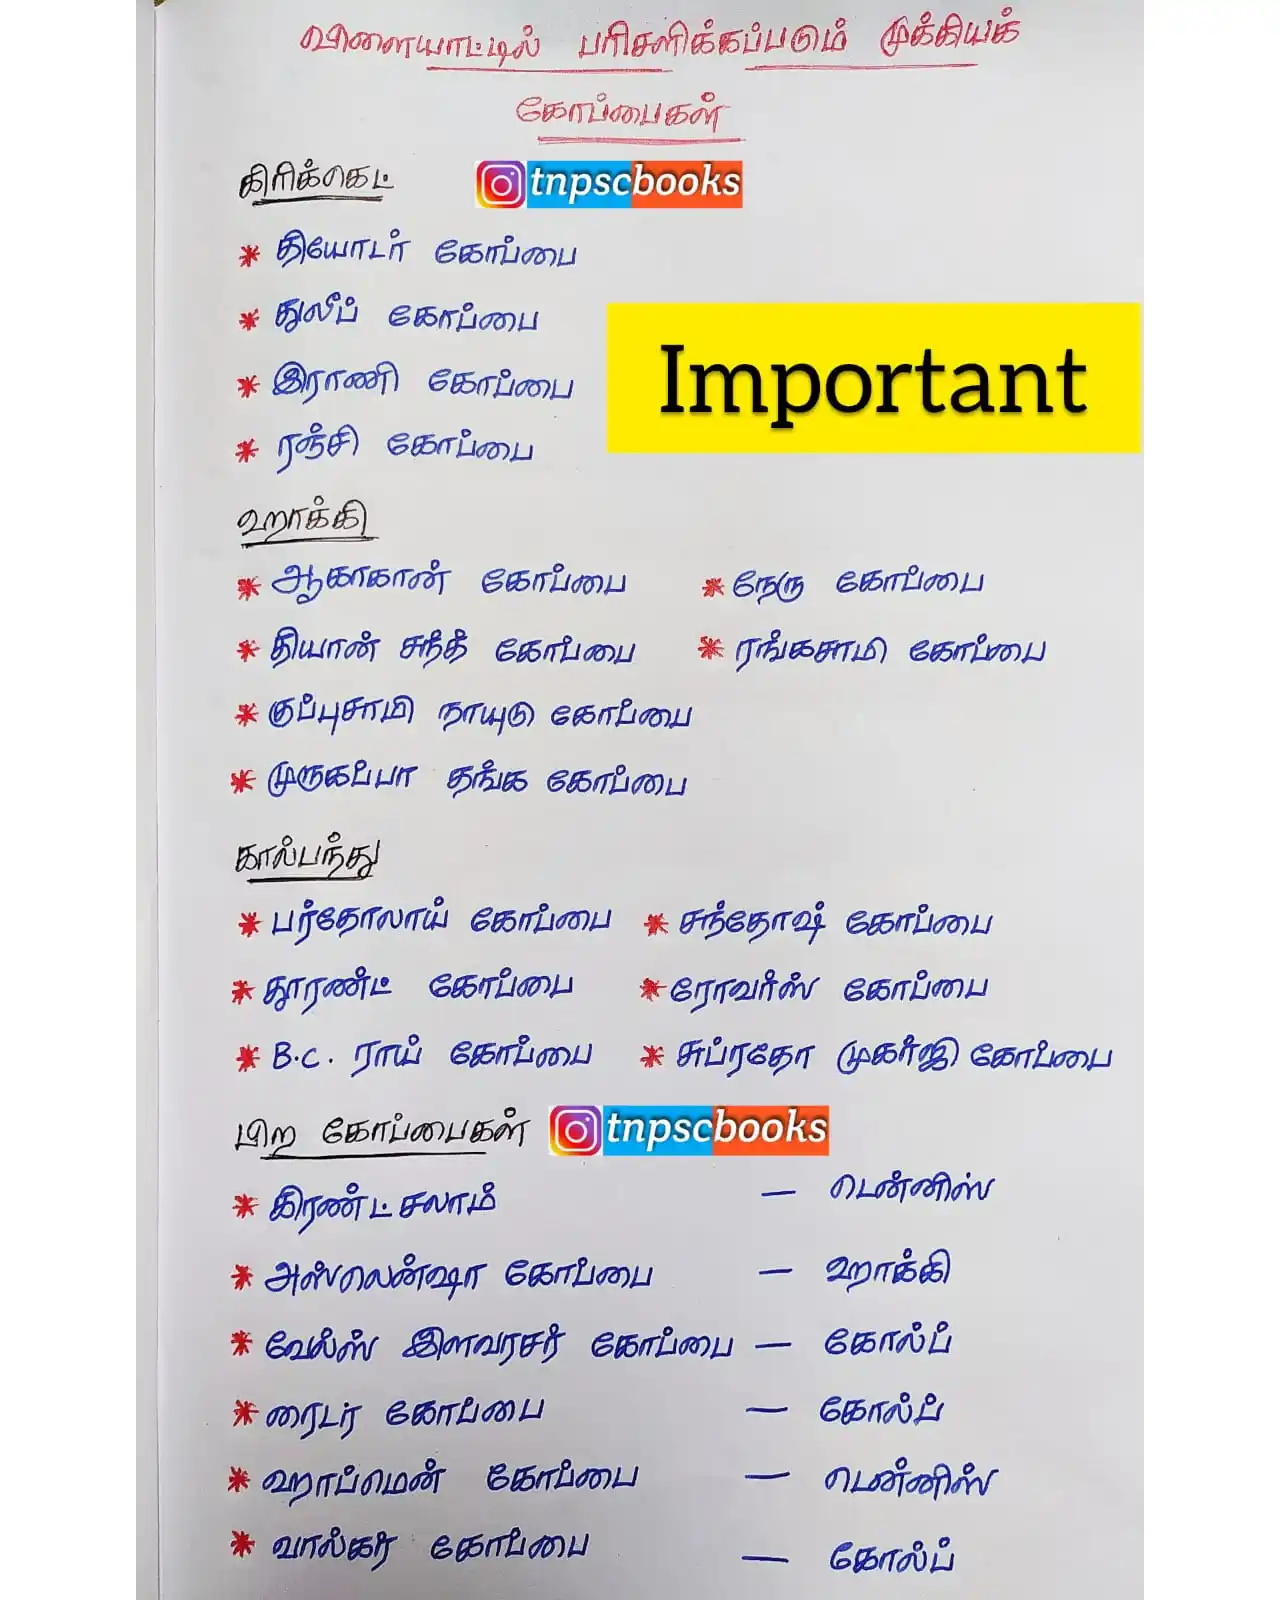 விளையாட்டில் பரிசளிக்கப்படும் முக்கியக்
கோப்பைகள்
கிரிக்கெட்
tnpscbooks
* தியோடர் கோப்பை
* துலீப் கோப்பை
* இராணி கோப்பை
Important
* ரஞ்சி கோப்பை
ஹாக்கி
* ஆகாகான் கோப்பை * நேரு கோப்பை
* தியான் சந்த் கோப்பை * ரங்கசாமி கோப்பை
* குப்புசாமி நாயுடு கோப்பை
* முருகப்பா தங்க கோப்பை
கால்பந்து
* பர்தோலாய் கோப்பை * சந்தோஷ் கோப்பை
* தூரண்ட் கோப்பை * ரோவர்ஸ் கோப்பை
* B.C. ராய் கோப்பை * சுப்ரதோ முகர்ஜி கோப்பை
பிற கோப்பைகள் tnpscbooks
* கிரண்ட் சலாம் — டென்னிஸ்
* அஸ்லென்ஷா கோப்பை — ஹாக்கி
* வேல்ஸ் இளவரசர் கோப்பை — கோல்ப்
* ரைடர் கோப்பை — கோல்ப்
* ஹாப்மென் கோப்பை — டென்னிஸ்
* வால்கர் கோப்பை — கோல்ப்